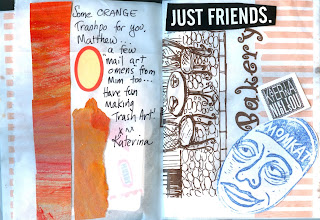 Some ORANGE
Trashpo for you,
Matthew...
a few
mail art
omens from
Mim too...
Have fun
making
Trash Art!
Katerina
JUST FRIENDS.
Bakery
KATERINA
NIKOLTSOU
MOMKAT